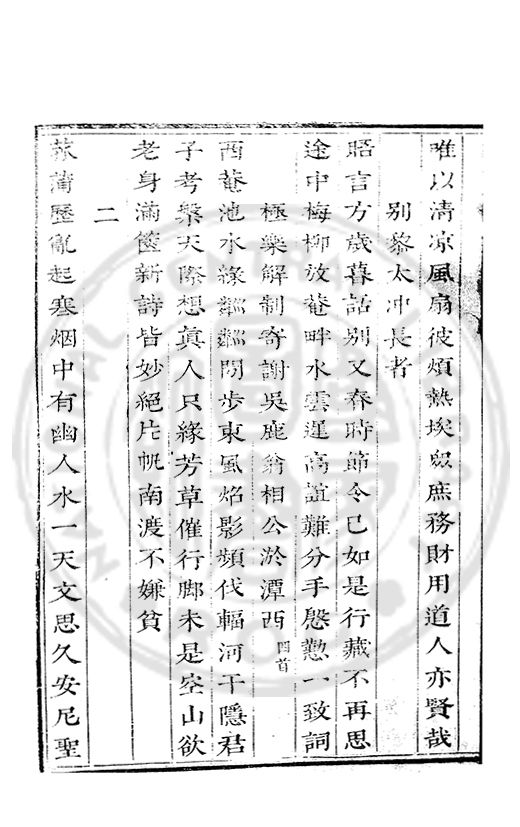 唯以清凉風扇彼煩熱埃㷀庶務財用道人亦賢哉
別黎太冲長者
晤言方歲暮話別又春時節令已如是行藏不再思
途中梅柳放菴畔水雲遲高誼難分手慇懃一致詞
極樂解制寄謝吳鹿翁相公於潭西四首
西菴池水綠粼粼閒步東風焰影頻伐輻河干隱君
子考槃天際想眞人只緣芳草催行脚未是空山欲
老身滿篋新詩皆妙絕片帆南渡不嫌貧
二
菻蒲歷亂起寒烟中有幽人水一天文思久安尼聖